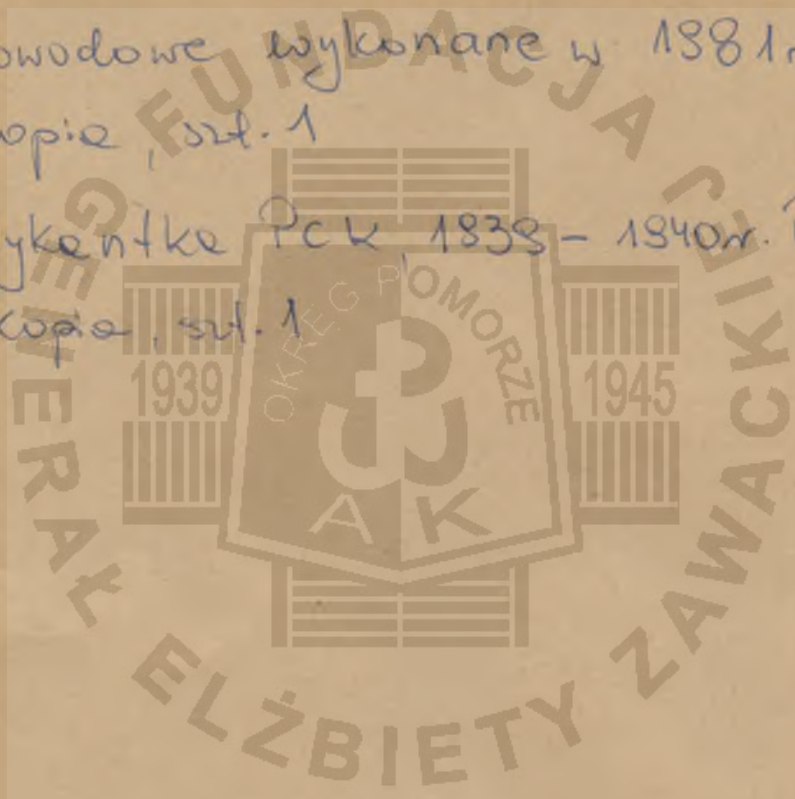 owodowe wykonane w 1981r
opia, szt. 1
ykantka PCK, 1939 - 1940r.
kopia, szt. 1
FUNDACJA GENERAŁ ELŻBIETY ZAWACKIEJ
OKRĘG POMORZE
1939
1945
A K